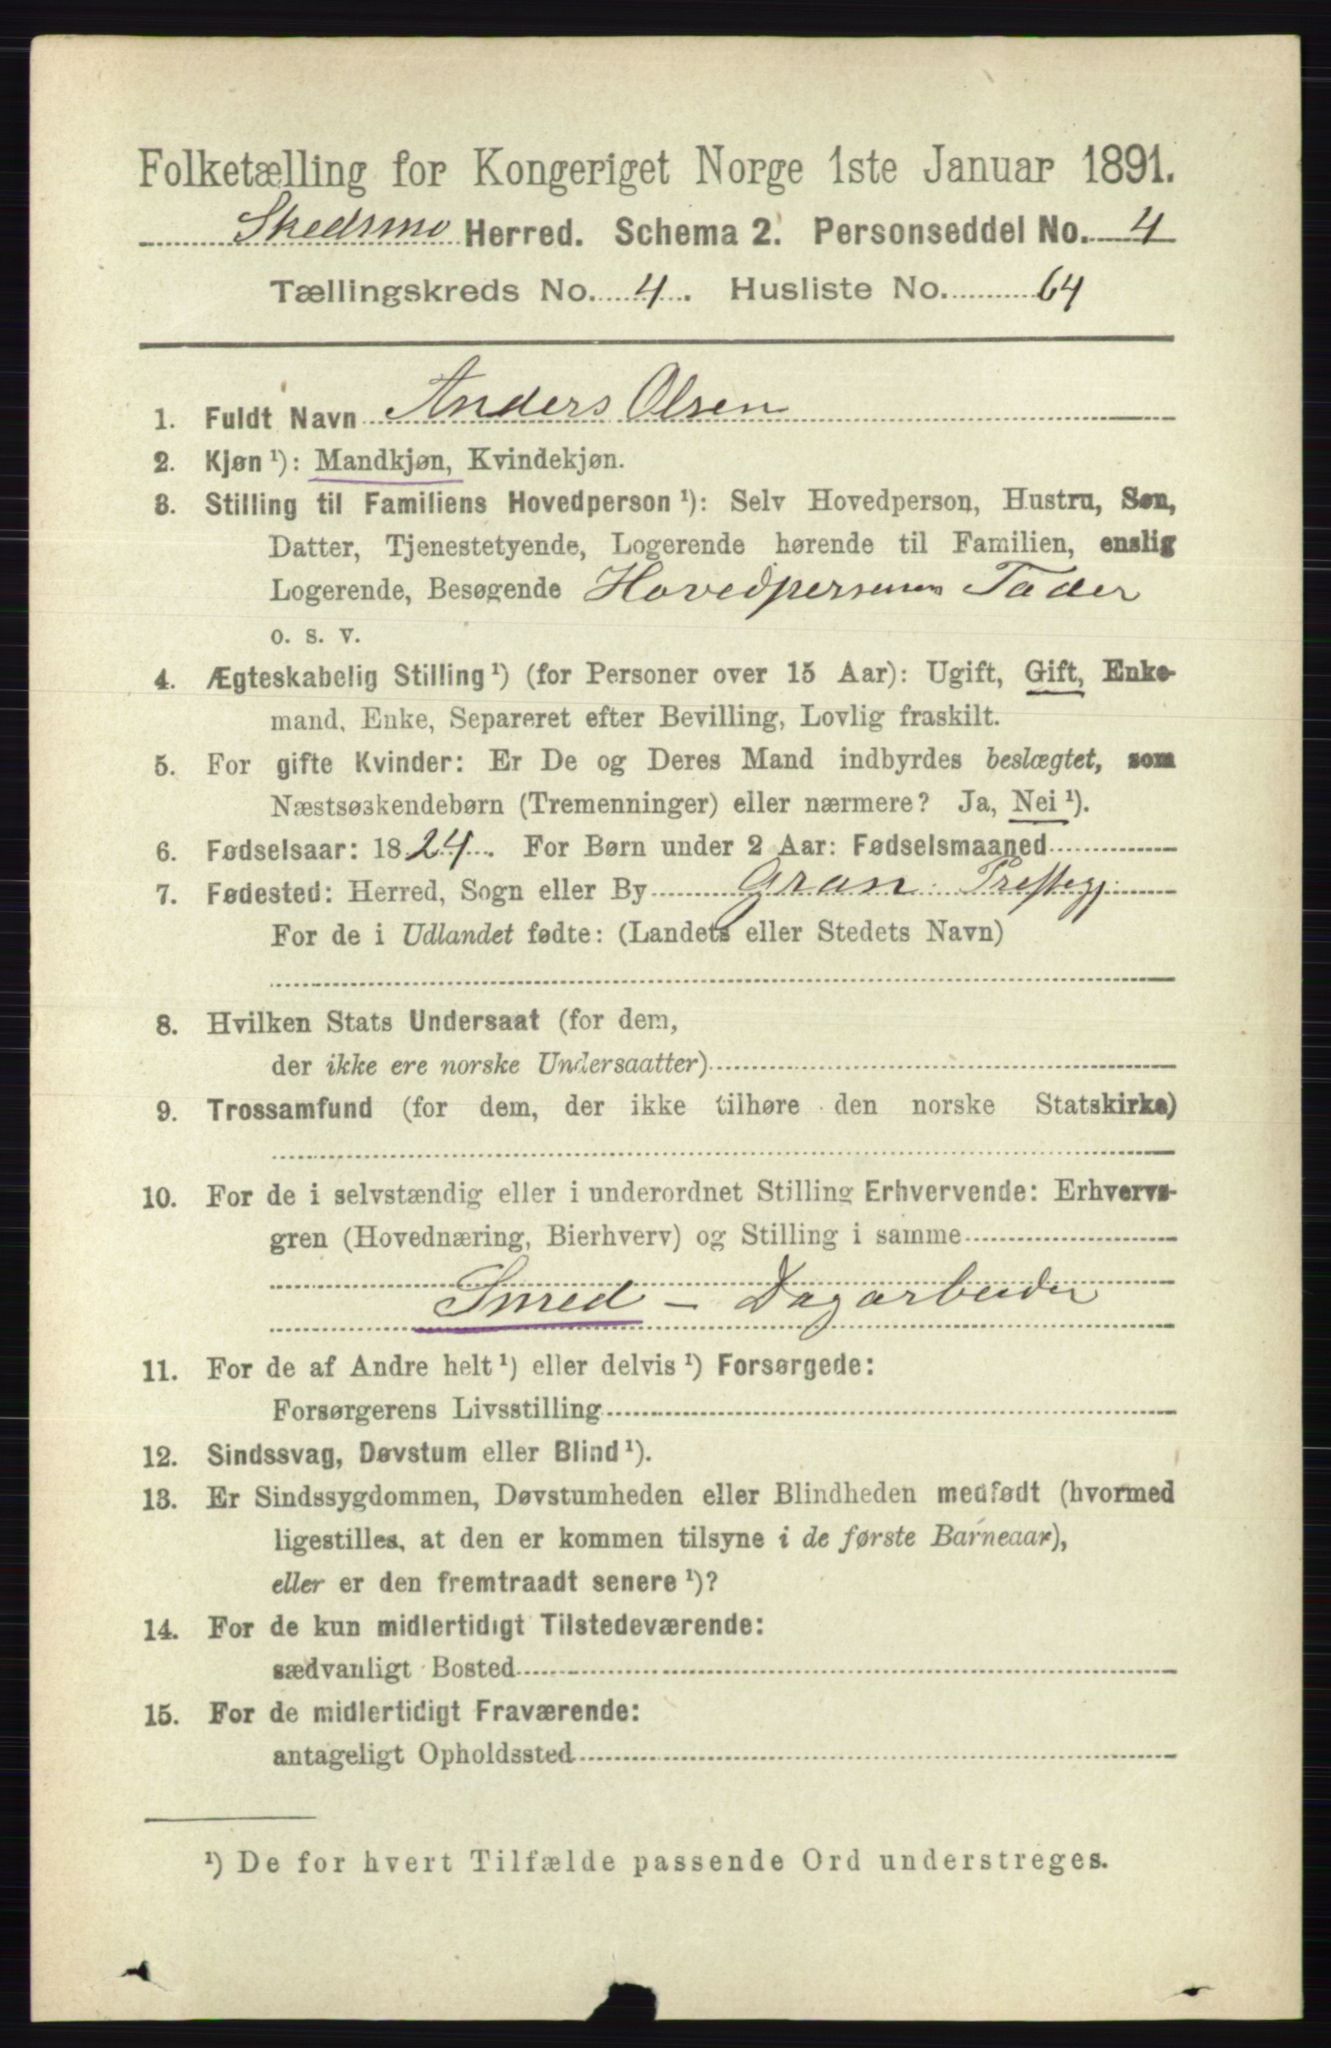 Folketælling for Kongeriget Norge 1ste Januar 1891.
Skedsmo Herred. Schema 2. Personseddel No. 4
Tællingskreds No. 4. Husliste No. 64
1. Fuldt Navn Anders Olsen
2. Kjøn ¹): Mandkjøn, Kvindekjøn.
3. Stilling til Familiens Hovedperson ¹): Selv Hovedperson, Hustru, Søn,
Datter, Tjenestetyende, Logerende hørende til Familien, enslig
Logerende, Besøgende Hovedpersonens Fader
o. s. v.
4. Ægteskabelig Stilling ¹) (for Personer over 15 Aar): Ugift, Gift, Enke-
mand, Enke, Separeret efter Bevilling, Lovlig fraskilt.
5. For gifte Kvinder: Er De og Deres Mand indbyrdes beslægtet, som
Næstsøskendebørn (Tremenninger) eller nærmere? Ja, Nei ¹).
6. Fødselsaar: 1824. For Børn under 2 Aar: Fødselsmaaned
7. Fødested: Herred, Sogn eller By Gran Prestegj:
For de i Udlandet fødte: (Landets eller Stedets Navn)
8. Hvilken Stats Undersaat (for dem,
der ikke ere norske Undersaatter)
9. Trossamfund (for dem, der ikke tilhøre den norske Statskirke)
10. For de i selvstændig eller i underordnet Stilling Erhvervende: Erhvervs-
gren (Hovednæring, Bierhverv) og Stilling i samme
Smed - Dagarbeider
11. For de af Andre helt ¹) eller delvis ¹) Forsørgede:
Forsørgerens Livsstilling
12. Sindssvag, Døvstum eller Blind ¹).
13. Er Sindssygdommen, Døvstumheden eller Blindheden medfødt (hvormed
ligestilles, at den er kommen tilsyne i de første Barneaar),
eller er den fremtraadt senere ¹)?
14. For de kun midlertidigt Tilstedeværende:
sædvanligt Bosted
15. For de midlertidigt Fraværende:
antageligt Opholdssted
¹) De for hvert Tilfælde passende Ord understreges.